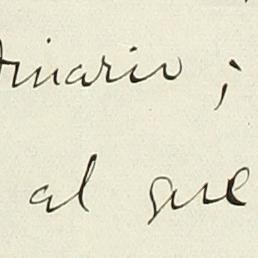 dinario;
al que